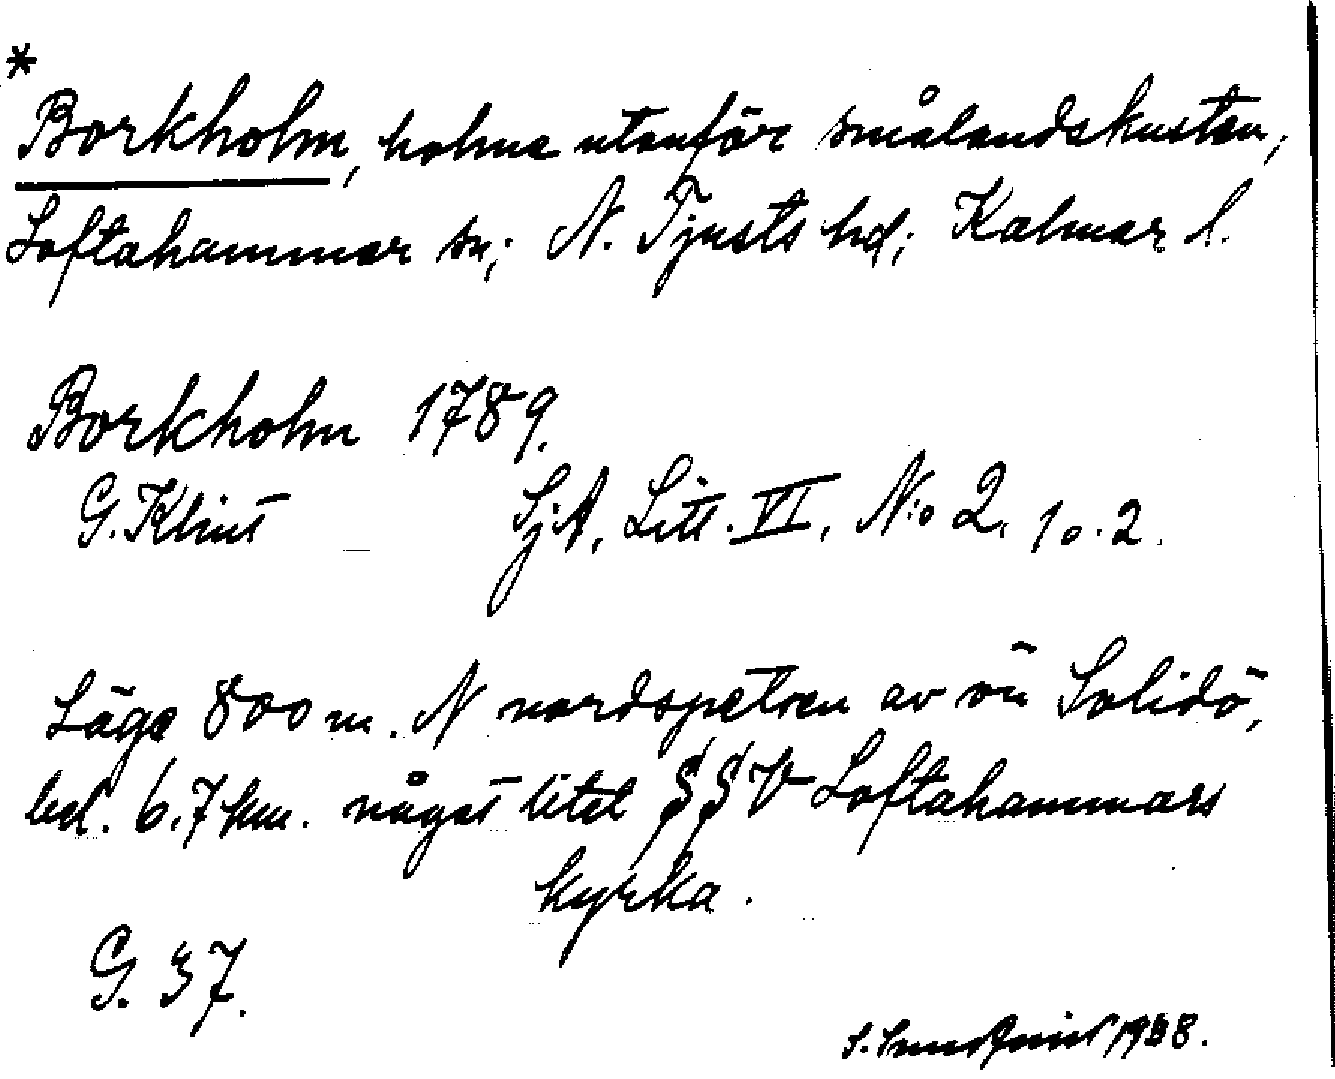 *
Borkholm, holme utanför smålandskusten,
Loftahammar sn; N. Tjusts hd; Kalmar l.
Borkholm 1789.
G. Klint SjA, Litt. VI, N:o 2. 10.2.
Läge 800 m. N nordspetsen av ön Solidö,
bel. 6,7 km. något litet SSV Loftahammars
kyrka.
G. 37.
S. 1938.